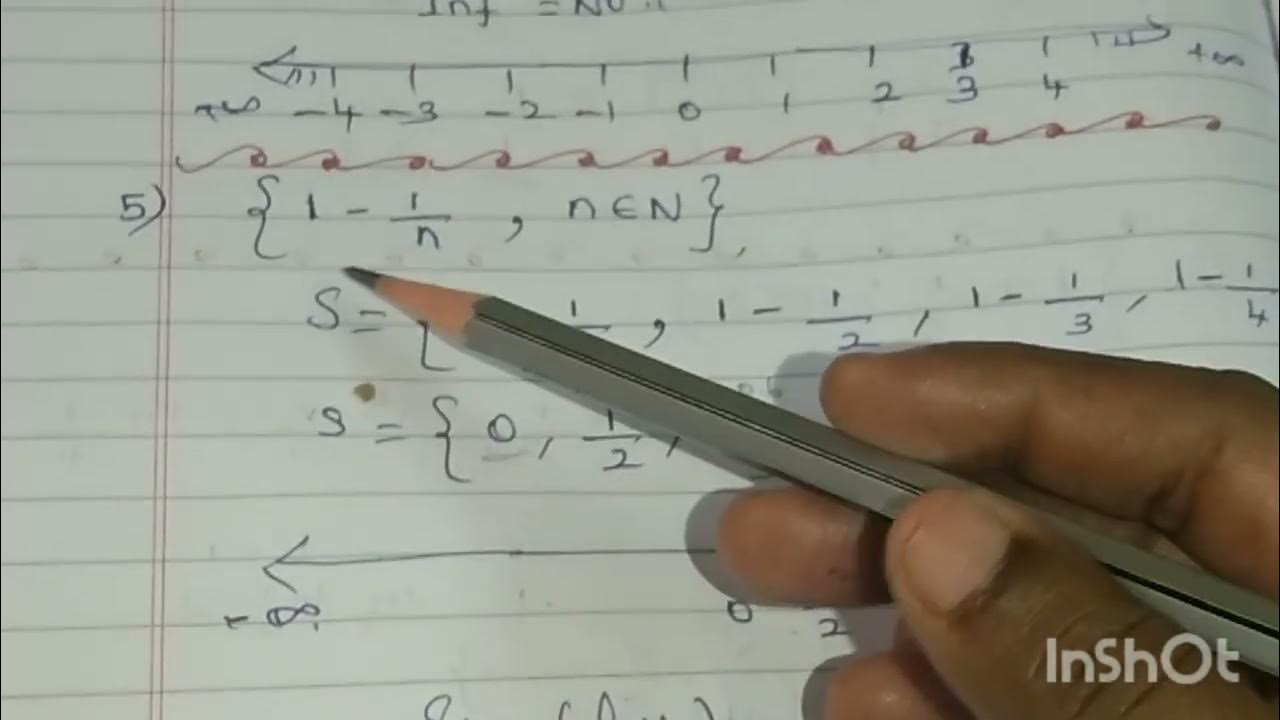 Inf =
+∞ -4 -3 -2 -1 0 1 2 3 4 +∞
5) { 1 - 1/n , n ∈ N },
S = { 1 , 1 - 1/2 , 1 - 1/3 , 1 - 1/4
S = { 0 , 1/2 ,
-∞ 0 2
InShOt